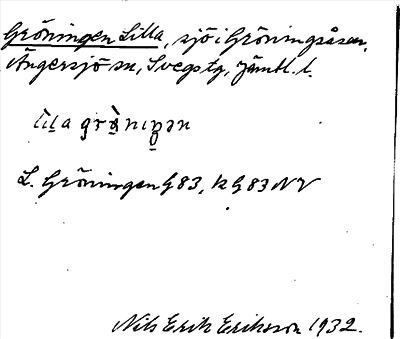 Gröningen Lilla, sjö i Gröningsåsen,
Ängersjö sn, Svegs tg, Jämtl. l.
L. Gröningen G 83, k G 83 NV
Nils Erik Eriksson 1932.